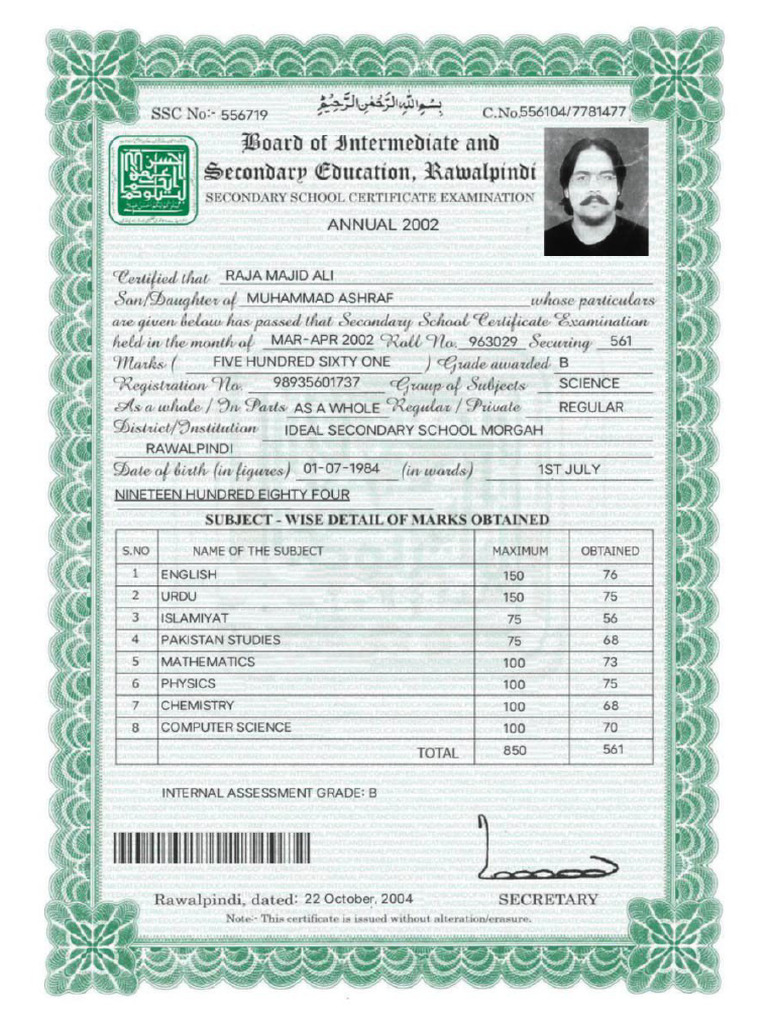 بِسْمِ اللهِ الرَّحْمٰنِ الرَّحِيْمِ
SSC No:- 556719
C.No.556104/7781477
Board of Intermediate and
Secondary Education, Rawalpindi
SECONDARY SCHOOL CERTIFICATE EXAMINATION
ANNUAL 2002
Certified that RAJA MAJID ALI
Son/Daughter of MUHAMMAD ASHRAF whose particulars
are given below has passed that Secondary School Certificate Examination
held in the month of MAR-APR 2002 Roll No. 963029 Securing 561
Marks ( FIVE HUNDRED SIXTY ONE ) Grade awarded B
Registration No. 98935601737 Group of Subjects SCIENCE
As a whole / In Parts AS A WHOLE Regular / Private REGULAR
District/Institution IDEAL SECONDARY SCHOOL MORGAH
RAWALPINDI
Date of birth (in figures) 01-07-1984 (in words) 1ST JULY
NINETEEN HUNDRED EIGHTY FOUR
SUBJECT - WISE DETAIL OF MARKS OBTAINED
S.NO NAME OF THE SUBJECT MAXIMUM OBTAINED
1 ENGLISH 150 76
2 URDU 150 75
3 ISLAMIYAT 75 56
4 PAKISTAN STUDIES 75 68
5 MATHEMATICS 100 73
6 PHYSICS 100 75
7 CHEMISTRY 100 68
8 COMPUTER SCIENCE 100 70
TOTAL 850 561
INTERNAL ASSESSMENT GRADE: B
Rawalpindi, dated: 22 October, 2004
SECRETARY
Note:- This certificate is issued without alteration/erasure.